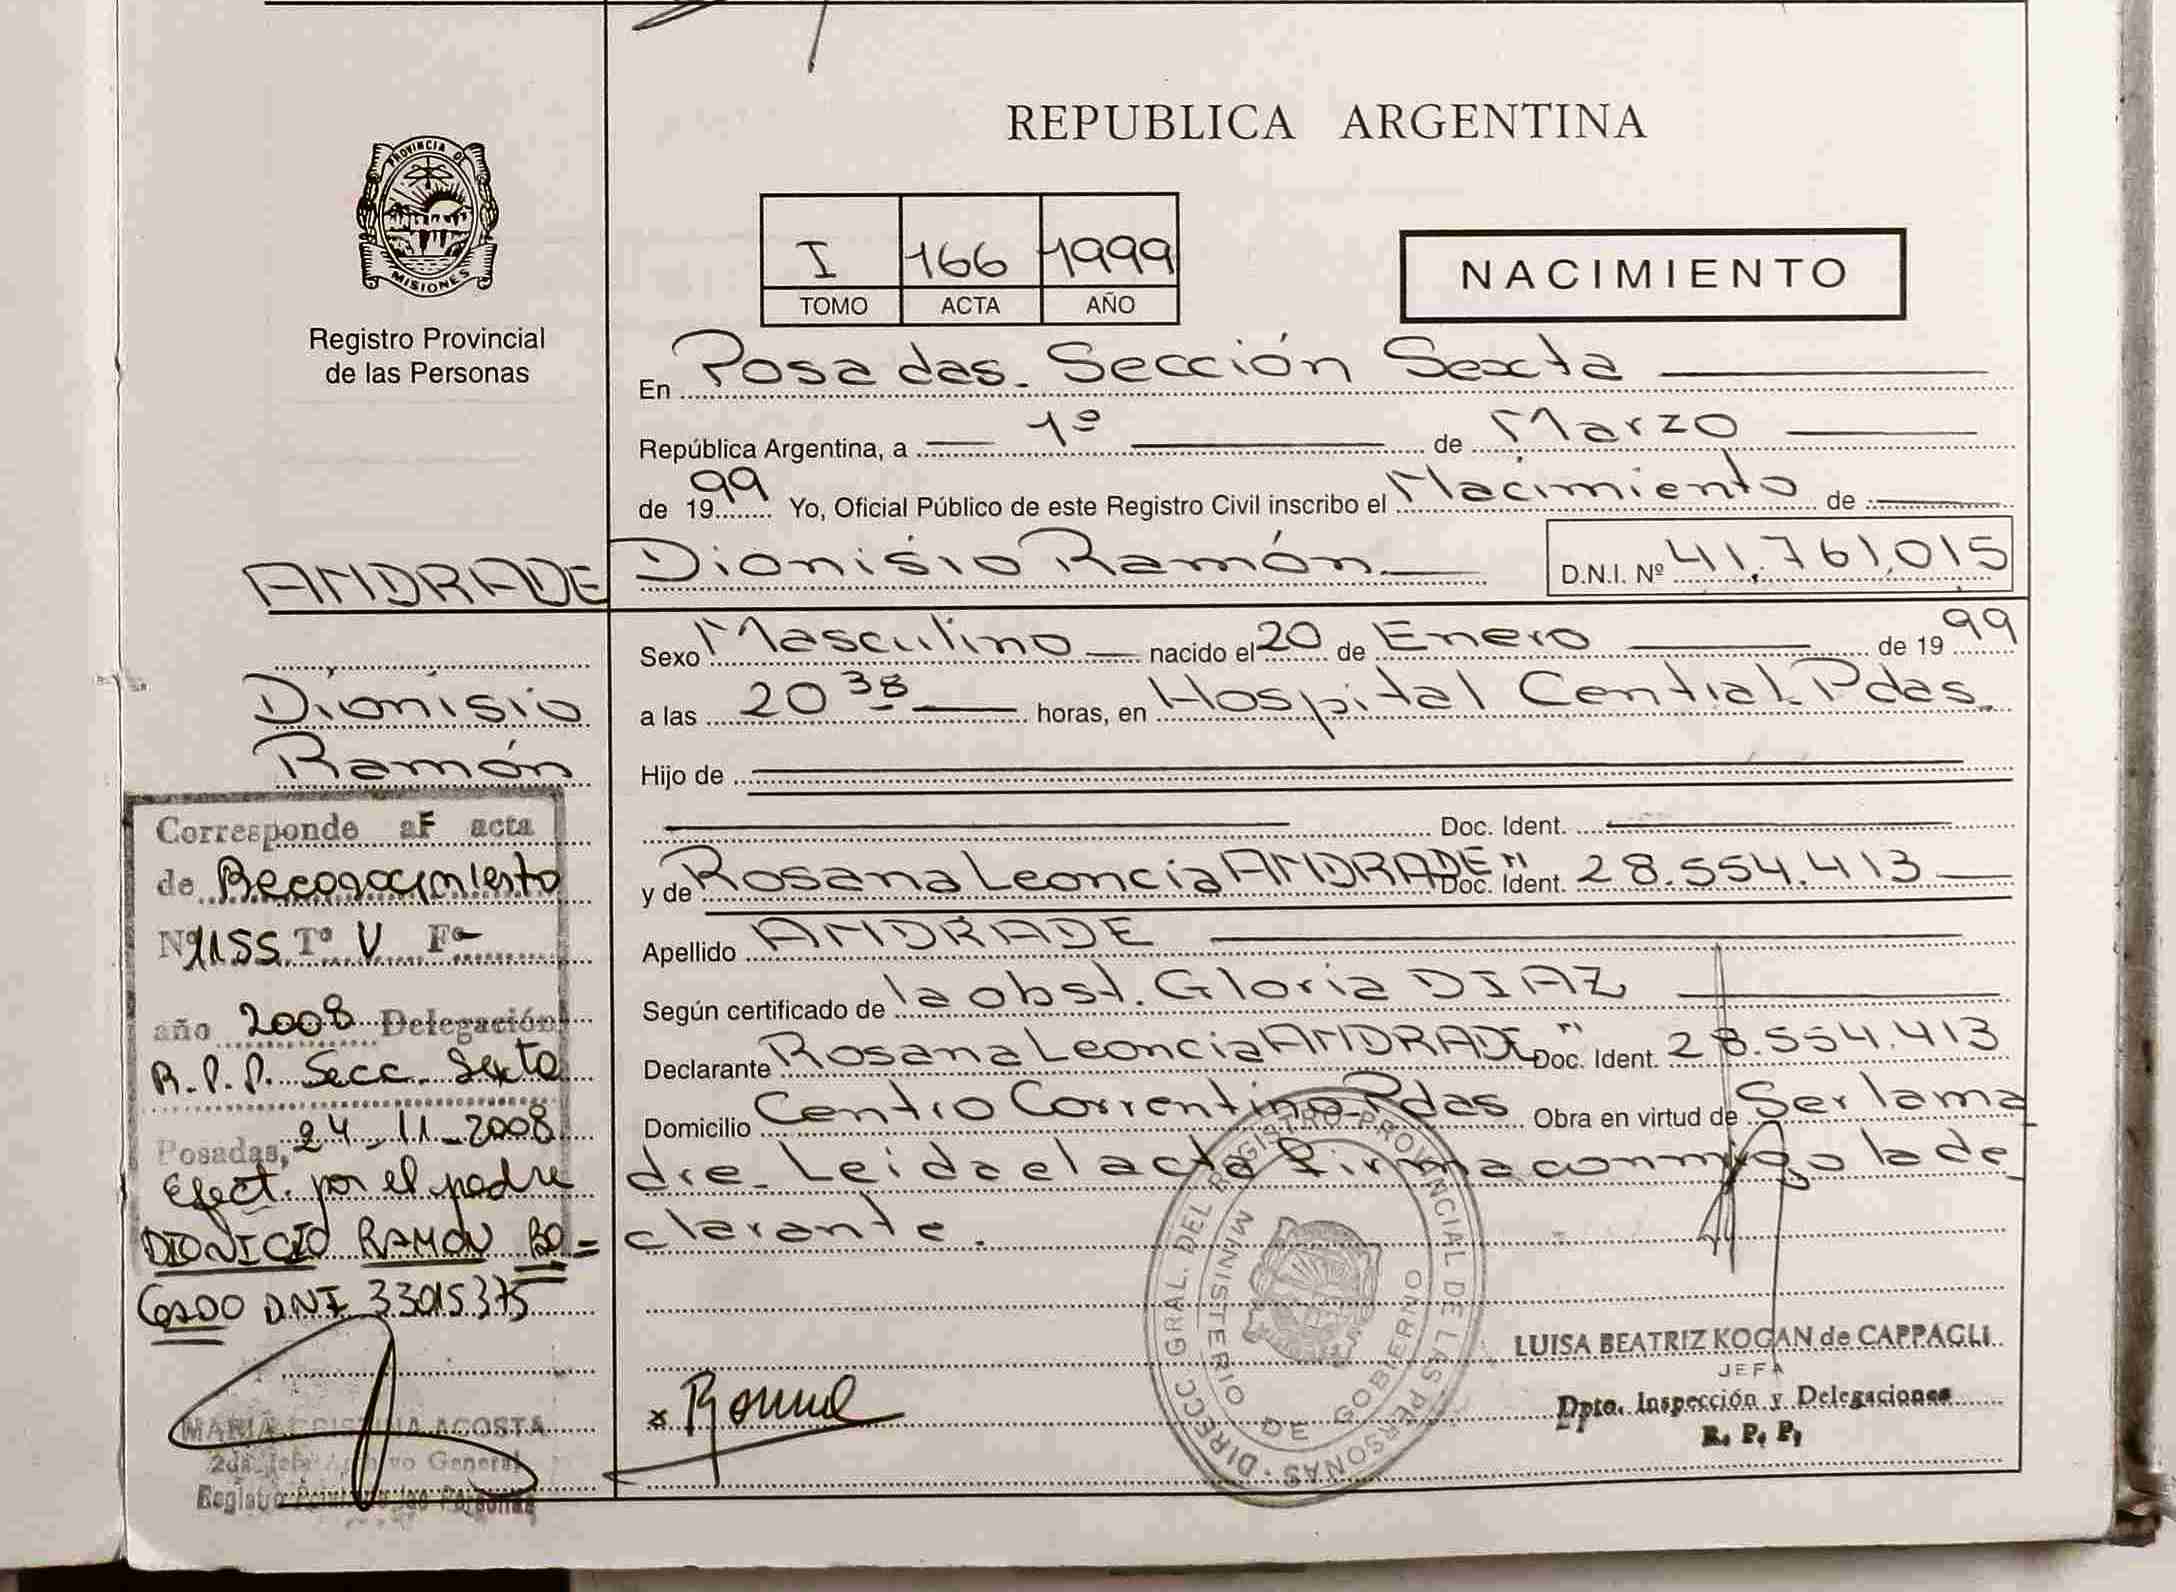 REPUBLICA ARGENTINA
PROVINCIA DE
MISIONES
Registro Provincial
de las Personas
I 166 1999
TOMO ACTA AÑO
NACIMIENTO
En Posadas. Sección Sexta
República Argentina, a 1º de Marzo
de 1999 Yo, Oficial Público de este Registro Civil inscribo el Nacimiento de
ANDRADE Dionisio Ramón D.N.I. Nº 41.761.015
Sexo Masculino nacido el 20 de Enero de 1999
a las 20 38 horas, en Hospital Central. Pdas.
Hijo de
Doc. Ident.
y de Rosana Leoncia ANDRADE "" Doc. Ident. 28.554.413
Apellido ANDRADE
Según certificado de la obst. Gloria DIAZ
Declarante Rosana Leoncia ANDRADE "" Doc. Ident. 28.554.413
Domicilio Centro Correntino-Pdas Obra en virtud de Ser la ma
dre. Leida el acta firma conmigo la de
clarante.
Dionisio
Ramón
Corresponde al acta
de Reconocimiento
Nº 1155 Tº V Fº -
año 2008 Delegación
R.P.P. Secc. Sexta
Posadas, 24-11-2008
Efect. por el padre
DIONICIO RAMON BO=
GADO DNI 33015375
MARIA CRISTINA ACOSTA
2da. Jefe Archivo General
Registro Provincial de las Personas
DIRECC. GRAL. DEL REGISTRO PROVINCIAL DE LAS PERSONAS
MINISTERIO DE GOBIERNO
LUISA BEATRIZ KOGAN de CAPPAGLI
JEFA
Dpto. Inspección y Delegaciones
R. P. P.